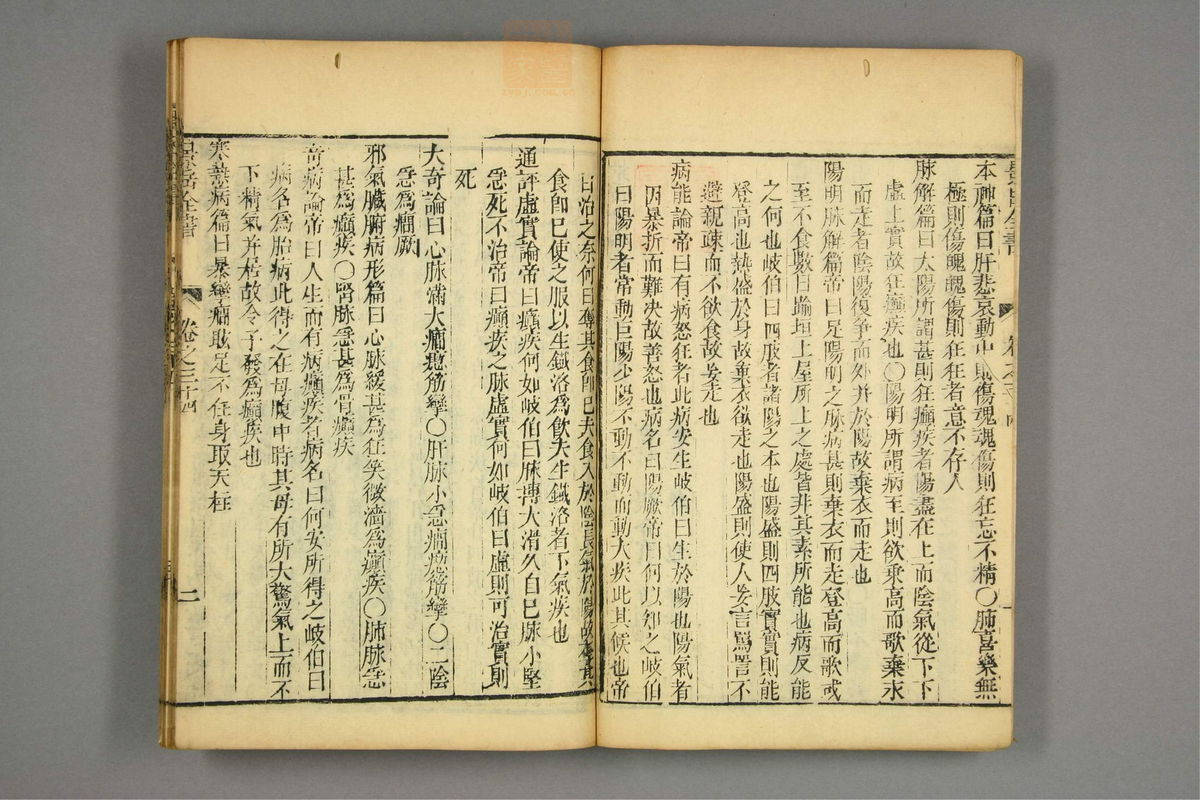 本神篇曰肝悲哀動中則傷魂魂傷則狂忘不精〇肺喜樂無
極則傷魄魄傷則狂狂者意不存人
脉解篇曰太陽所謂甚則狂癲疾者陽盡在上而陰氣從下下
虛上實故狂癲疾也〇陽明所謂病至則欲乘高而歌棄衣
而走者陰陽復爭而外并於陽故棄衣而走也
陽明脉解篇帝曰足陽明之脉病甚則棄衣而走登高而歌或
至不食數日踰垣上屋所上之處皆非其素所能也病反能
之何也岐伯曰四肢者諸陽之本也陽盛則四肢實實則能
登高也熱盛於身故棄衣欲走也陽盛則使人妄言罵詈不
避親疎而不欲食故妄走也
病能論帝曰有病怒狂者此病安生岐伯曰生於陽也陽氣者
因暴折而難決故善怒也病名曰陽厥帝曰何以知之岐伯
曰陽明者常動巨陽少陽不動不動而動大疾此其候也帝
曰治之奈何曰奪其食即已夫食入於陰長氣於陽故奪其
食即已使之服以生鐵洛為飲夫生鐵洛者下氣疾也
通評虛實論帝曰癲疾何如岐伯曰脉摶大滑久自已脉小堅
急死不治帝曰癲疾之脉虛實何如岐伯曰虛則可治實則
死
大奇論曰心脉滿大癎瘛筋攣〇肝脉小急癎瘛筋攣〇二陰
急為癎厥
邪氣臟腑病形篇曰心脉緩甚為狂笑微濇為癲疾〇肺脉急
甚為癲疾〇腎脉急甚為骨癲疾
奇病論帝曰人生而有病癲疾者病名曰何安所得之岐伯曰
病名為胎病此得之在母腹中時其母有所大驚氣上而不
下精氣并居故令子發為癲疾也
寒熱病篇曰暴攣癎眩足不任身取天柱
景岳全書
卷之三十四
二